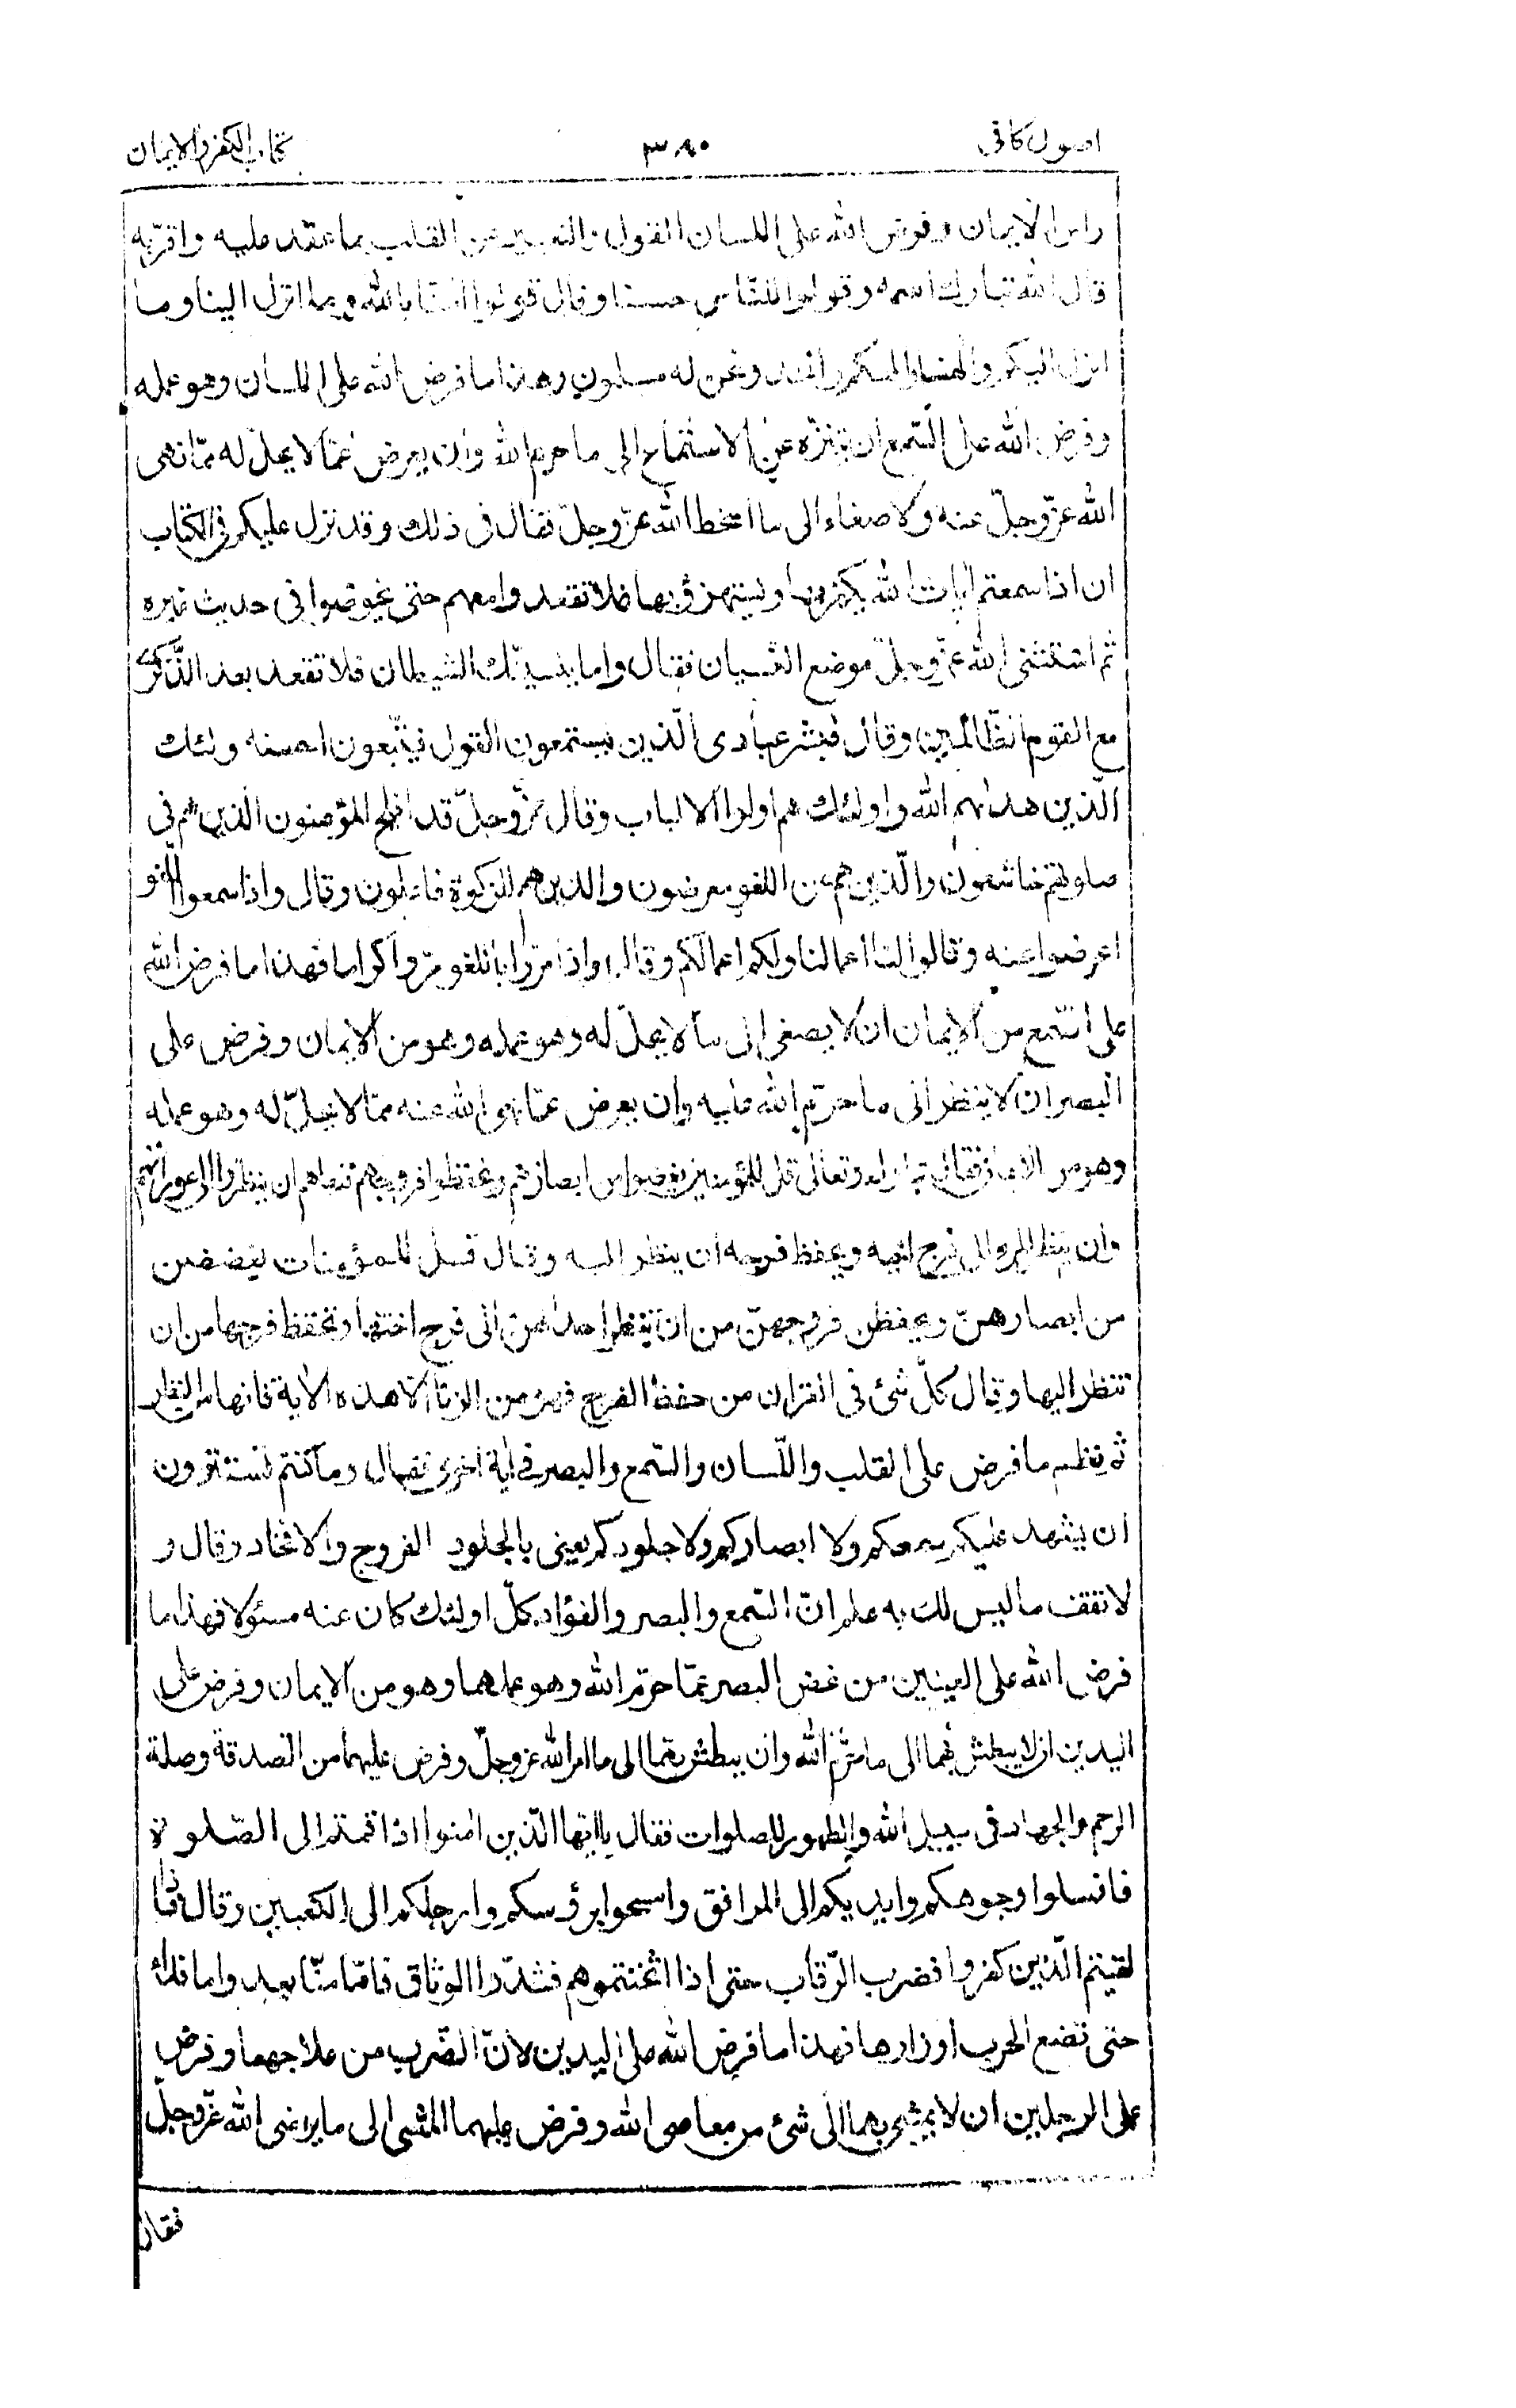 اصول كافى
٣٨٠
كتاب الكفر والايمان
راس الايمان و فرض الله على اللسان القول والتعبير عن القلب بما عقد عليه واقر به
قال الله تبارك اسمه وقولوا للناس حسنا وقال قولوا امنا بالله وبما انزل الينا وما
انزل اليكم والهنا والهكم واحد ونحن له مسلمون وهذا ما فرض الله على اللسان وهو عمله
وفرض الله على السمع ان يتنزه عن الاستماع الى ما حرم الله وان يعرض عما لا يحل له مما نهى
الله عز وجل عنه والاصغاء الى ما اسخط الله عز وجل فقال فى ذلك وقد نزل عليكم فى الكتاب
ان اذا سمعتم ايات الله يكفر بها ويستهزؤ بها فلا تقعدوا معهم حتى يخوضوا فى حديث غيره
ثم استثنى الله عز وجل موضع النسيان فقال واما ينسينك الشيطان فلا تقعد بعد الذكرى
مع القوم الظالمين وقال فبشر عبادى الذين يستمعون القول فيتبعون احسنه اولئك
الذين هداهم الله واولئك هم اولوا الالباب وقال عز وجل قد افلح المؤمنون الذين هم فى
صلوتهم خاشعون والذين هم عن اللغو معرضون والذين هم للزكوة فاعلون وقال واذا سمعوا اللغو
اعرضوا عنه وقالوا لنا اعمالنا ولكم اعمالكم وقال واذا مروا باللغو مروا كراما فهذا ما فرض الله
على السمع من الايمان ان لا يصغى الى ما لا يحل له وهو عمله وهو من الايمان وفرض على
البصر ان لا ينظر الى ما حرم الله عليه وان يعرض عما نهى الله عنه مما لا يحل له وهو عمله
وهو من الايمان فقال تبارك وتعالى قل للمؤمنين يغضوا من ابصارهم ويحفظوا فروجهم فنهاهم ان ينظروا الى عوراتهم
وان ينظر المرء الى فرج اخيه ويحفظ فرجه ان ينظر اليه وقال قل للمؤمنات يغضضن
من ابصارهن ويحفظن فروجهن من ان تنظر احداهن الى فرج اختها وتحفظ فرجها من ان
تنظر اليها وقال كل شئ فى القران من حفظ الفرج فهو من الزنا الا هذه الاية فانها من النظر
ثم نظم ما فرض على القلب واللسان والسمع والبصر فى اية اخرى فقال وما كنتم تستترون
ان يشهد عليكم سمعكم ولا ابصاركم ولا جلودكم يعنى بالجلود الفروج والافخاذ وقال و
لا تقف ما ليس لك به علم ان السمع والبصر والفؤاد كل اولئك كان عنه مسئولا فهذا ما
فرض الله على العينين من غض البصر عما حرم الله وهو عملهما وهو من الايمان وفرض على
اليدين ان لا يبطش بهما الى ما حرم الله وان يبطش بهما الى ما امر الله عز وجل وفرض عليهما من الصدقة وصلة
الرحم والجهاد فى سبيل الله والطهور للصلوات فقال يا ايها الذين امنوا اذا قمتم الى الصلوة
فاغسلوا وجوهكم وايديكم الى المرافق وامسحوا برؤسكم وارجلكم الى الكعبين وقال فاذا
لقيتم الذين كفروا فضرب الرقاب حتى اذا اثخنتموهم فشدوا الوثاق فاما منا بعد واما فداء
حتى تضع الحرب اوزارها فهذا ما فرض الله على اليدين لان الضرب من علاجهما وفرض
على الرجلين ان لا يمشى بهما الى شئ من معاصى الله وفرض عليهما المشى الى ما يرضى الله عز وجل
فقال